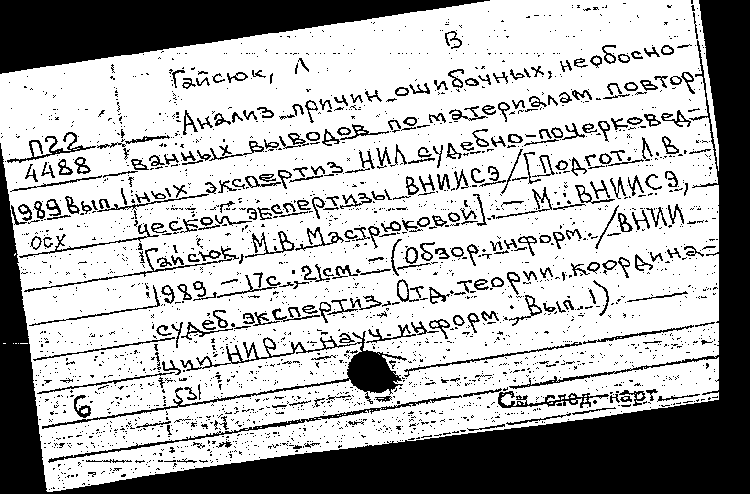 В
Гайсюк, Л
Анализ причин ошибочных, необосно-
п22 ванных выводов по материалам повтор-
4488 ных экспертиз НИЛ судебно-почерковед-
1989 Вып.1 ческой экспертизы ВНИИСЭ / [Подгот. Л.В.
осх Гайсюк, М.В. Мастрюковой]. - М.: ВНИИСЭ,
1989. - 17с.; 21см. - (Обзор. информ. / ВНИИ
судеб. экспертиз. Отд. теории, координа-
ции НИР и науч. информ.; Вып. 1)
6 531
См. след. карт.